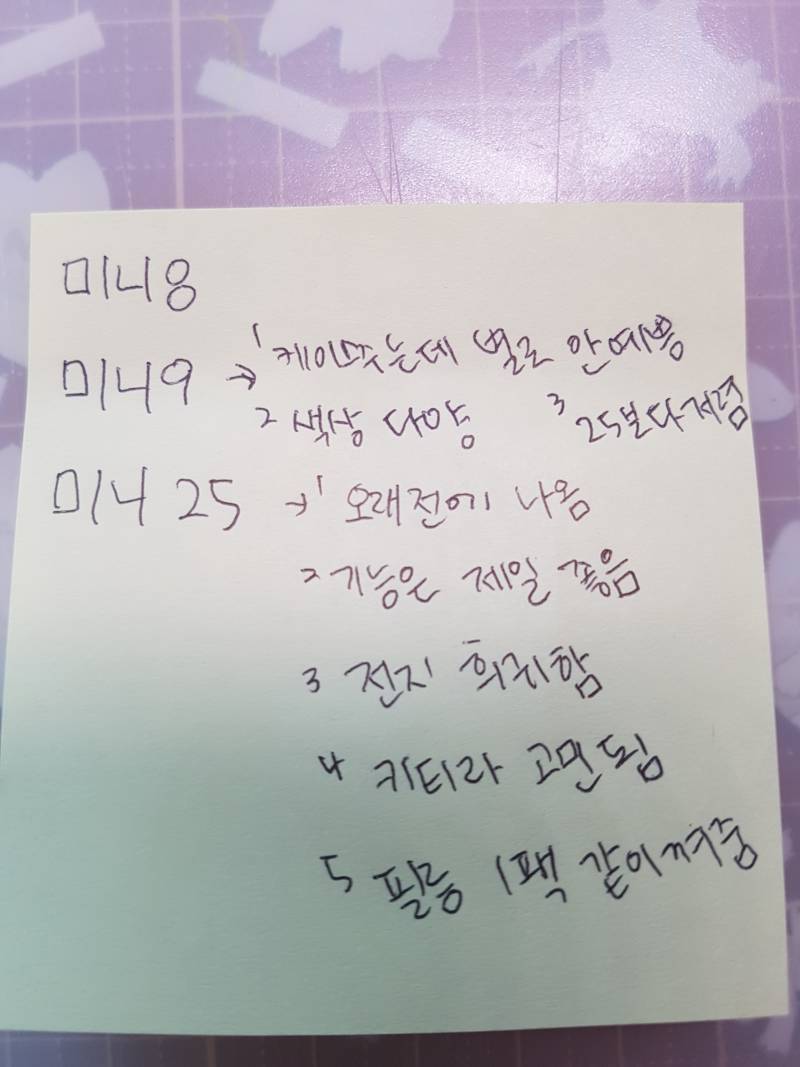 미니8
미니9 → 1 케이스주는데 별로 안예쁨
2 색상 다양 3 25보다저렴
미니 25 → 1 오래전에 나옴
2 기능은 제일 좋음
3 전지 희귀함
4 키티라 고민됨
5 필름 1팩 같이껴줌